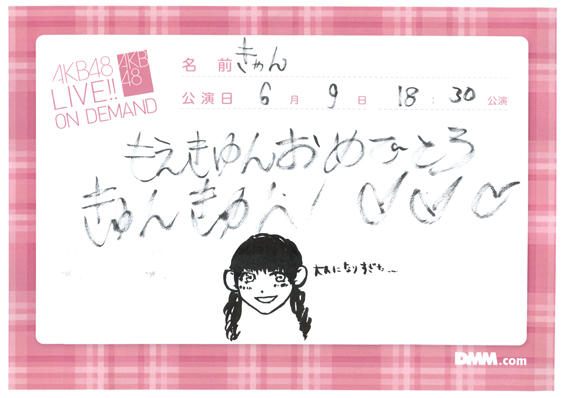 AKB48
LIVE!!
ON DEMAND
AKB
48
名 前 きゃん
公演日 6 月 9 日 18 : 30 公演
もえきゅんおめでとう
きゅんきゅん! ♡♡♡
大人になりすぎた…
DMM.com